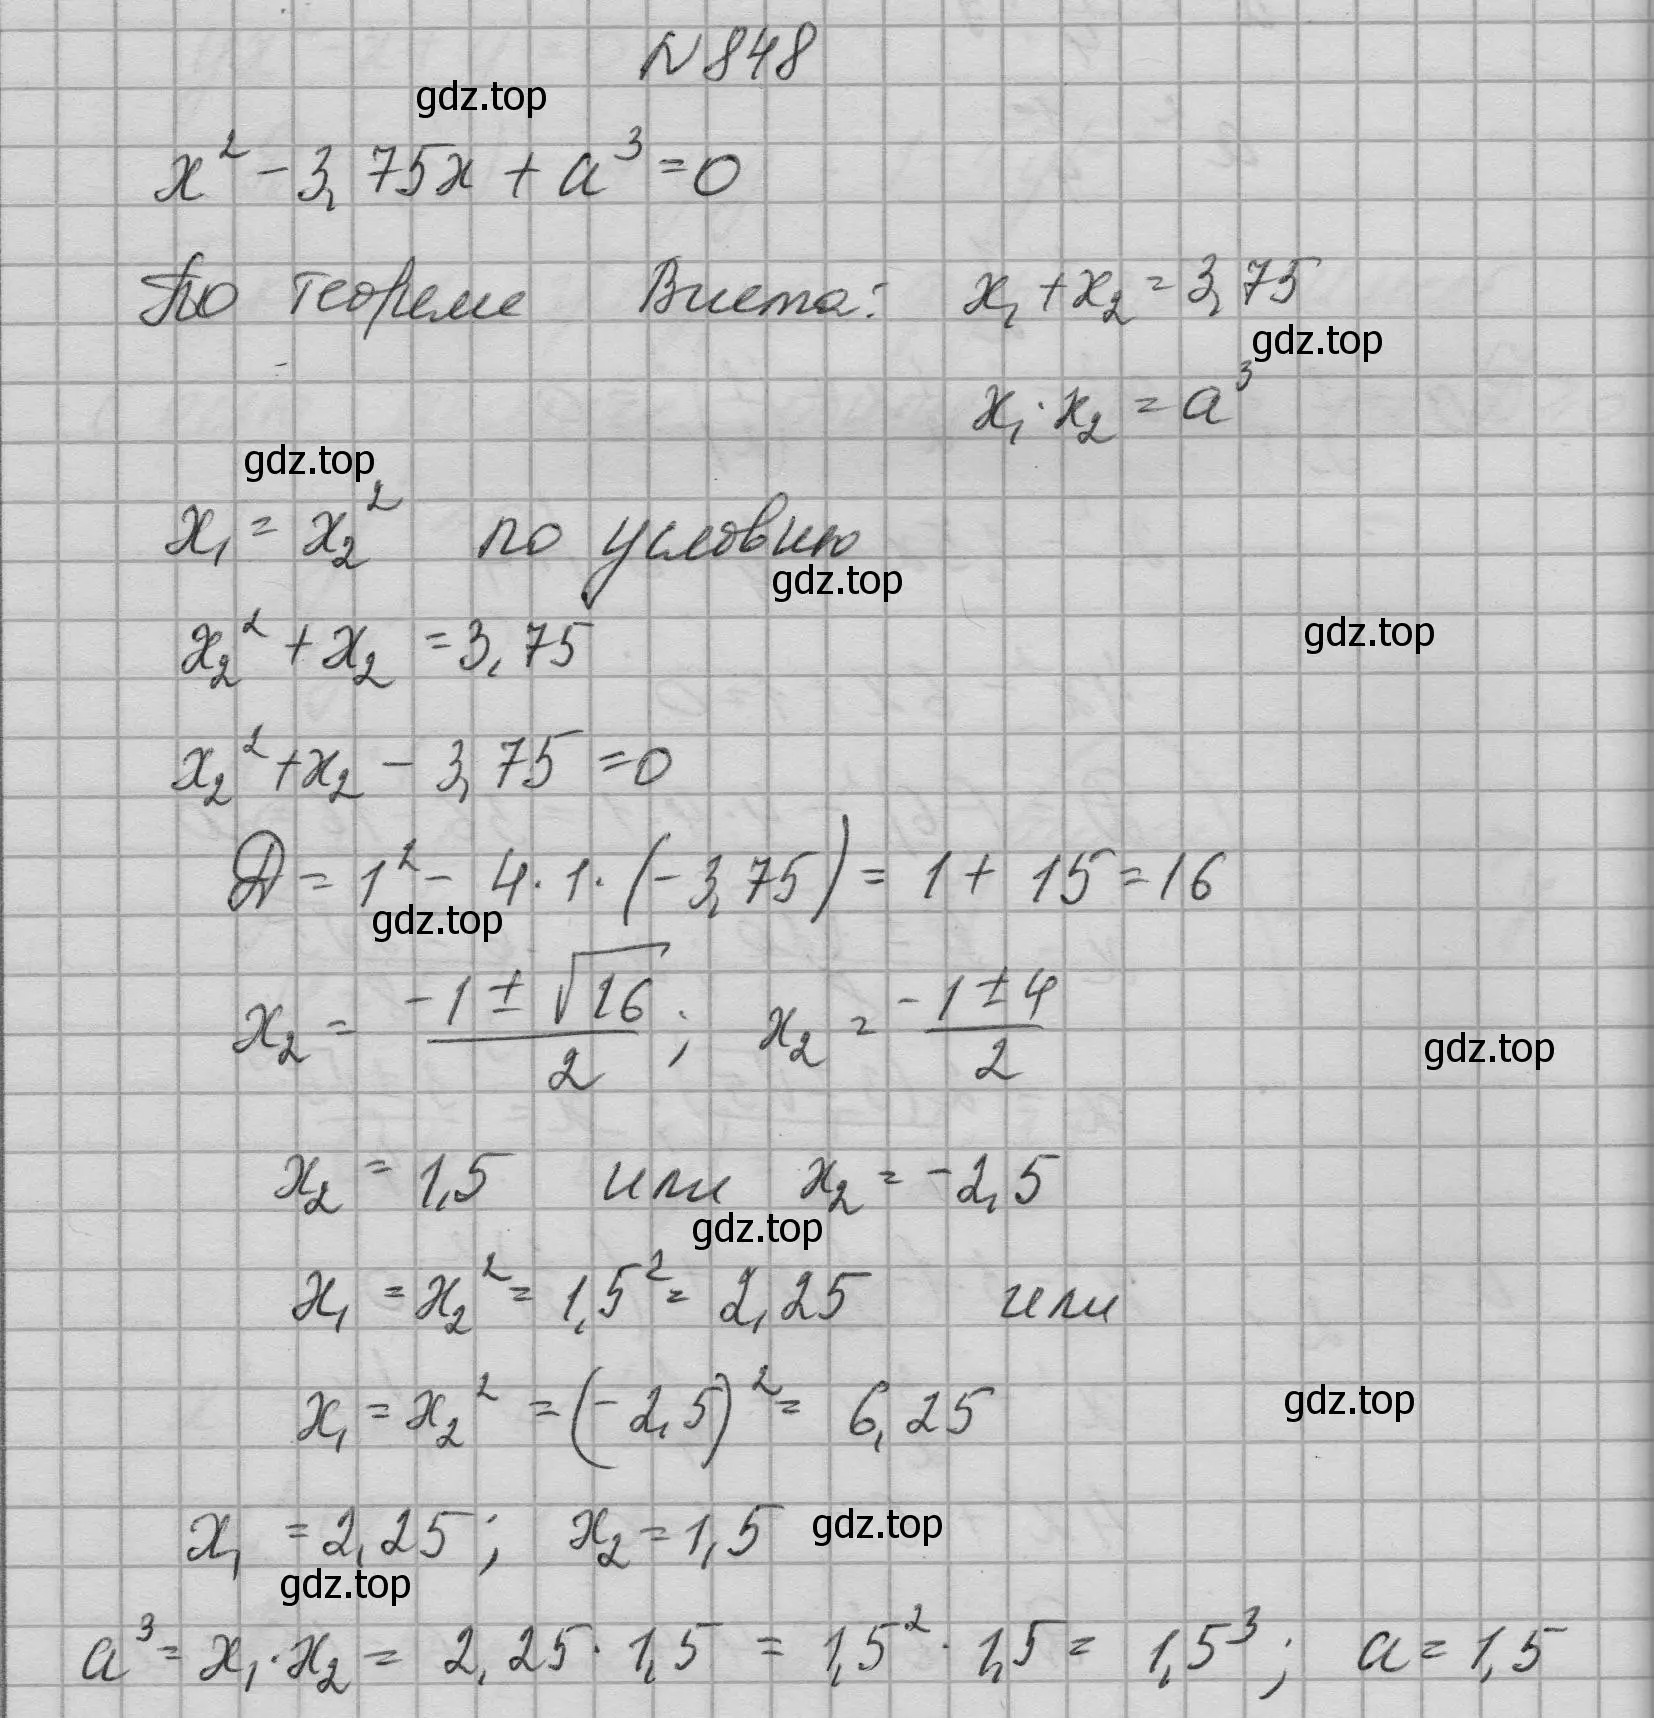 N848
gdz.top
x² - 3,75x + a³ = 0
По теореме Виета: x₁ + x₂ = 3,75
gdz.top
x₁ · x₂ = a³
gdz.top
x₁ = x₂² по условию
gdz.top
x₂² + x₂ = 3,75
gdz.top
x₂² + x₂ - 3,75 = 0
D = 1² - 4 · 1 · (-3,75) = 1 + 15 = 16
gdz.top
x₂ = (-1 ± √16)/2 ; x₂ = (-1 ± 4)/2
gdz.top
x₂ = 1,5 или x₂ = -2,5
gdz.top
x₁ = x₂² = 1,5² = 2,25 или
x₁ = x₂² = (-2,5)² = 6,25
gdz.top
x₁ = 2,25 ; x₂ = 1,5
gdz.top
gdz.top
a³ = x₁ · x₂ = 2,25 · 1,5 = 1,5² · 1,5 = 1,5³ ; a = 1,5